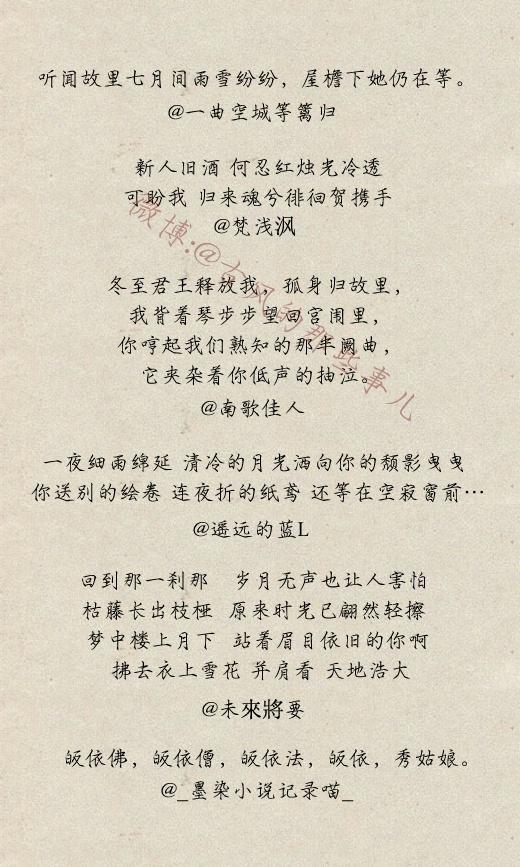 听闻故里七月间雨雪纷纷，屋檐下她仍在等。
@一曲空城等篱归
新人旧酒 何忍红烛光冷透
可盼我 归来魂兮徘徊贺携手
@梵浅沨
冬至君王释放我，孤身归故里，
我背着琴步步望回宫闱里，
你哼起我们熟知的那半阙曲，
它夹杂着你低声的抽泣。
@南歌佳人
一夜细雨绵延 清冷的月光洒向你的颓影曳曳
你送别的绘卷 连夜折的纸鸢 还等在空寂窗前…
@遥远的蓝L
回到那一刹那 岁月无声也让人害怕
枯藤长出枝桠 原来时光已翩然轻擦
梦中楼上月下 站着眉目依旧的你啊
拂去衣上雪花 并肩看 天地浩大
@未來將要
皈依佛，皈依僧，皈依法，皈依，秀姑娘。
@_墨染小说记录喵_
微博:@古风的那些事儿